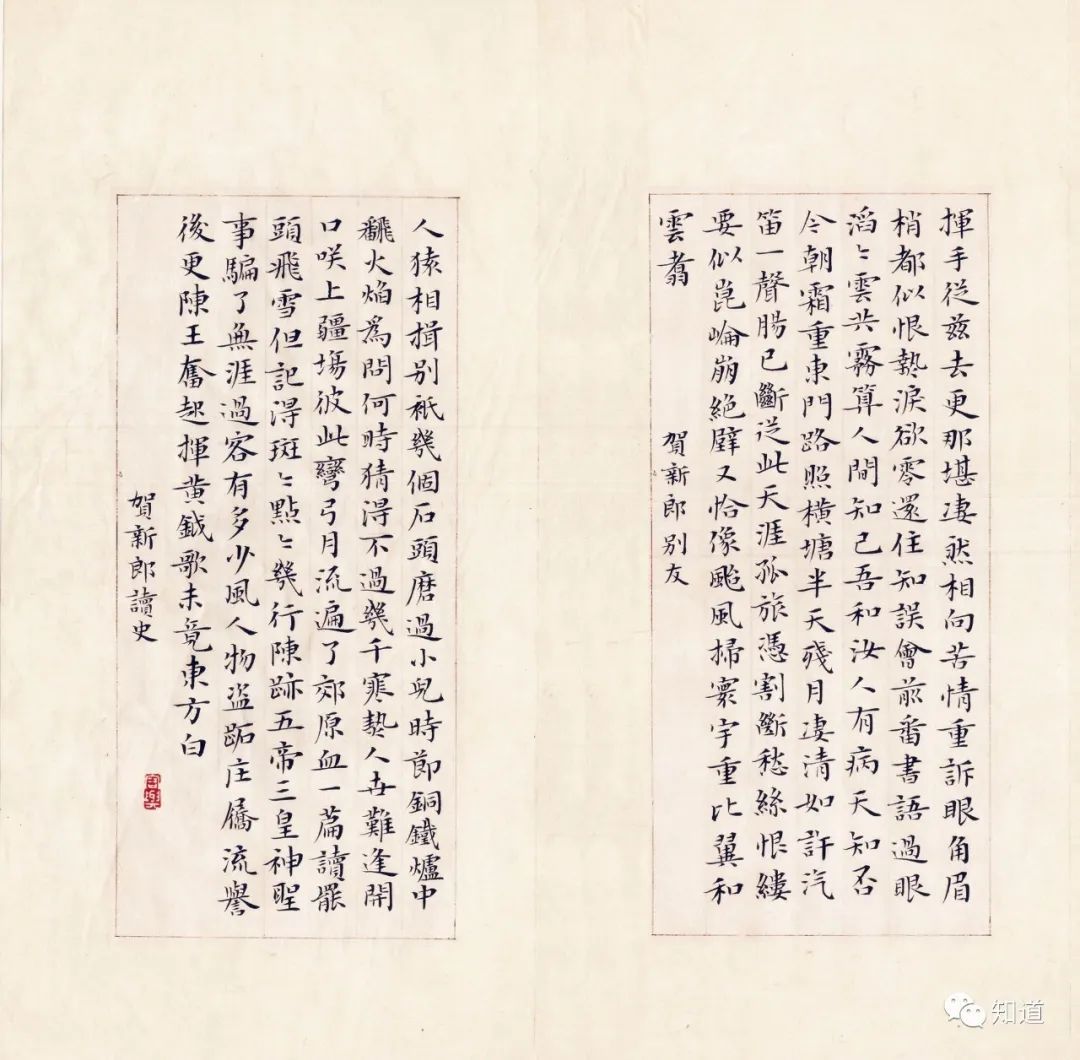 揮手從兹去更那堪凄然相向苦情重訴眼角眉
梢都似恨熱淚欲零還住知誤會前番書語過眼
滔〻雲共霧算人間知己吾和汝人有病天知否
今朝霜重東門路照橫塘半天殘月凄清如許汽
笛一聲腸已斷從此天涯孤旅憑割斷愁絲恨縷
要似崑崙崩絕壁又恰像颱風掃寰宇重比翼和
雲翥
賀新郎別友
人猿相揖別衹幾個石頭磨過小兒時節銅鐵爐中
飜火焰爲問何時猜得不過幾千寒熱人世難逢開
口咲上疆塲彼此彎弓月流遍了郊原血一篇讀罷
頭飛雪但記得斑〻點〻幾行陳跡五帝三皇神聖
事騙了無涯過客有多少風人物盜跖庄屩流譽
後更陳王奮起揮黃鉞歌未竟東方白
賀新郎讀史
知道